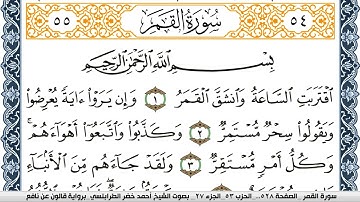 ٥٥ سُورَةُ القَمَرِ ٥٤
بِسْمِ اللَّهِ الرَّحْمَٰنِ الرَّحِيمِ
اَقْتَرَبَتِ السَّاعَةُ وَانشَقَّ الْقَمَرُ ١ وَإِن يَرَوْاْ ءَايَةً يُعْرِضُواْ
وَيَقُولُواْ سِحْرٌ مُّسْتَمِرٌّ ٢ وَكَذَّبُواْ وَاتَّبَعُواْ أَهْوَاءَهُمْ
وَكُلُّ أَمْرٍ مُّسْتَقِرٌّ ٣ وَلَقَدْ جَاءَهُم مِّنَ الْأَنۢبَاءِ
سورة القمر _ الصفحة ٥٢٨ _ الحزب ٥٣ _ الجزء ٢٧ _ بصوت الشيخ أحمد خضر الطرابلسي _ برواية قالون عن نافع